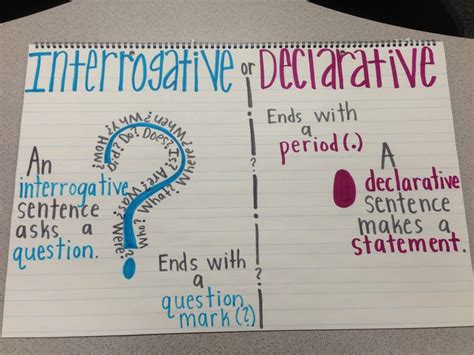 Interrogative or Declarative
An
interrogative
sentence
asks a
question.
How? Did? Do? Does? Is? Are? Was? Were?
Why? When? Where? What? Who?
Ends with
a
question
mark(?)
Ends with
a
period(.)
A
declarative
sentence
makes a
statement.